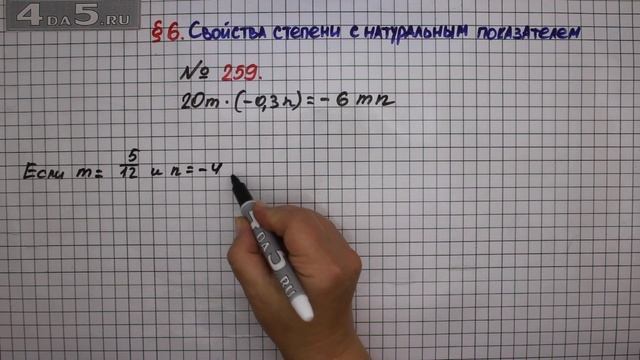 4DA5.RU
§ 6. Свойства степени с натуральным показателем
№ 259.
20m · (-0,3n) = - 6 mn
Если m = 5/12 и n = -4
4DA5.RU